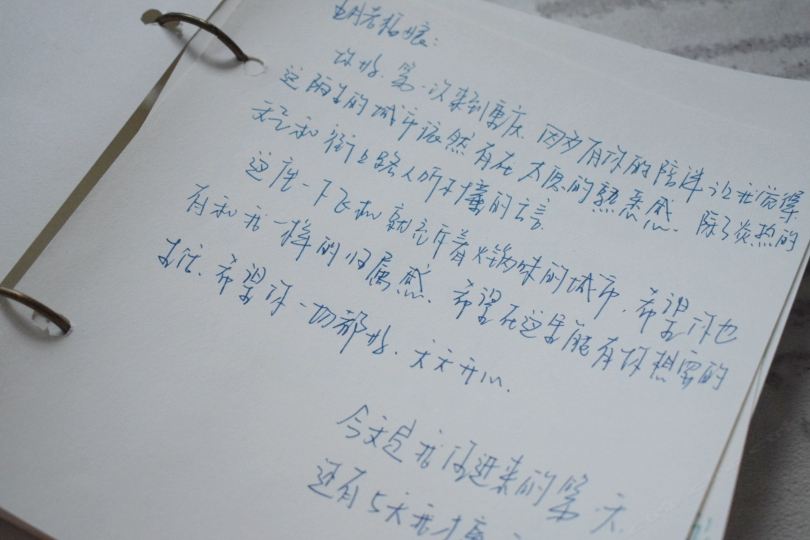 你好. 第一次来到重庆. 因为有你的陪伴让我觉得
这陌生的城市依然有在太原的熟悉感. 除了炎热的
天气和街上路人听不懂的言
这座一下飞机就充斥着火锅味的城市. 希望你也
有和我一样的归属感. 希望在这里能有你想要的
生活. 希望你一切都好. 天天开心.
今天是我住进来的第一天.
还有5天我才离